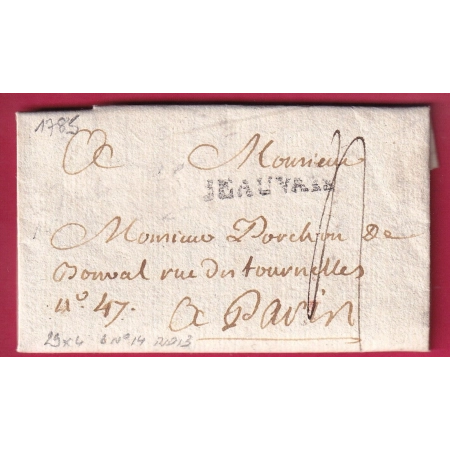 1785
A Monsieur
BEAUVAIS
Monsieur Porchon De
Bonval rue des tournelles
n° 47.
A Paris
29x4 6 N° 14